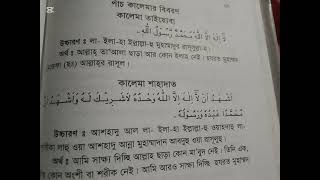 পাঁচ কালেমার বিবরণ
কালেমা তাইয়্যেবা
لَا إِلٰهَ إِلَّا اللهُ مُحَمَّدٌ رَّسُوْلُ اللهِ
উচ্চারণ ঃ লা- ইলা-হা ইল্লাল্লা-হু মুহাম্মাদুর রাসূলুল্লা-হ।
অর্থ ঃ আল্লাহ্ তা'আলা ছাড়া আর কোন ইলাহ্ নেই। হযরত মুহাম্মদ
(ছঃ) আল্লাহর রাসূল।
কালেমা শাহাদাত
اَشْهَدُ اَنْ لَّا اِلٰهَ اِلَّا اللهُ وَحْدَهُ لَاشَرِيْكَ لَهُ وَاَشْهَدُ اَنَّ
مُحَمَّدًا عَبْدُهُ وَرَسُوْلُهُ
উচ্চারণ ঃ আশহাদু আল লা- ইলা-হা ইল্লাল্লা-হু ওয়াহদাহু লা-
লাহু ওয়া আশহাদু আন্না মুহাম্মাদান আবদুহু ওয়া রাসূলুহু।
অর্থ ঃ আমি সাক্ষ্য দিচ্ছি আল্লাহ ছাড়া কোন মা'বুদ নেই। তিনি এক,
কোন অংশী বা শরীক নেই। আমি আরও সাক্ষ্য দিচ্ছি হযরত মুহাম্মদ